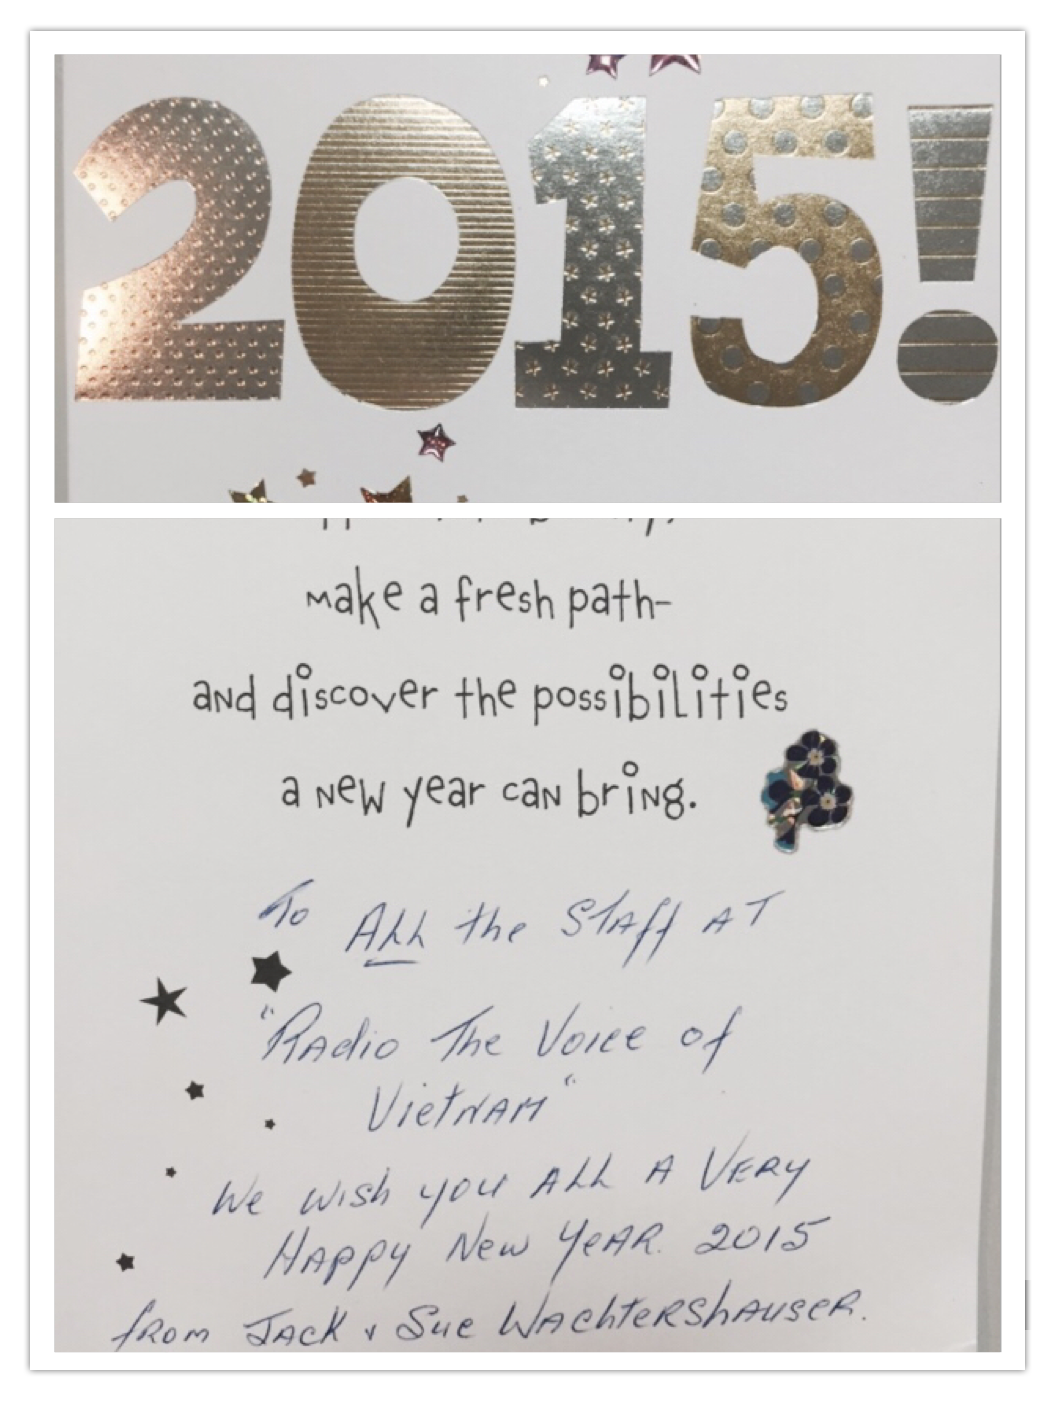 2015!
make a fresh path-
and discover the possibilities
a new year can bring.
To All the Staff at
"Radio The Voice of
Vietnam"
We wish you all a very
Happy New Year. 2015
from Jack & Sue Wachtershauser.